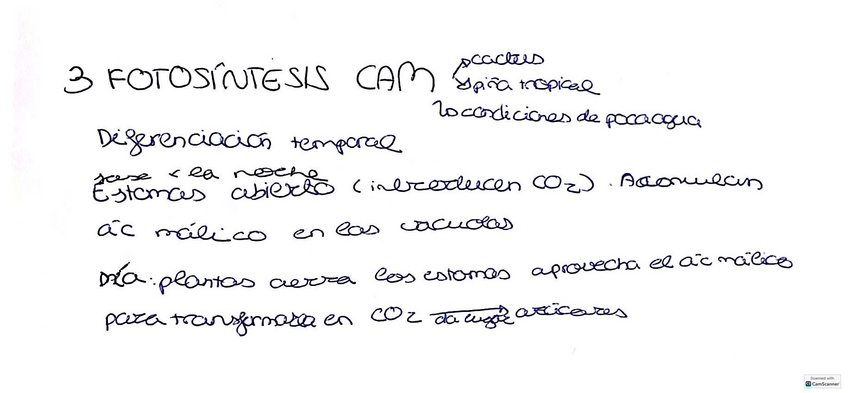 3 FOTOSÍNTESIS CAM
cactus
piña tropical
condiciones de poca agua
Diferenciación temporal
la noche
Estomas abierto (introducen CO2). Acumulan
ác málico en las vacuolas
Día: plantas cierra los estomas aprovecha el ác málico
para transformarla en CO2 da lugar azúcares
Scanned with
CamScanner